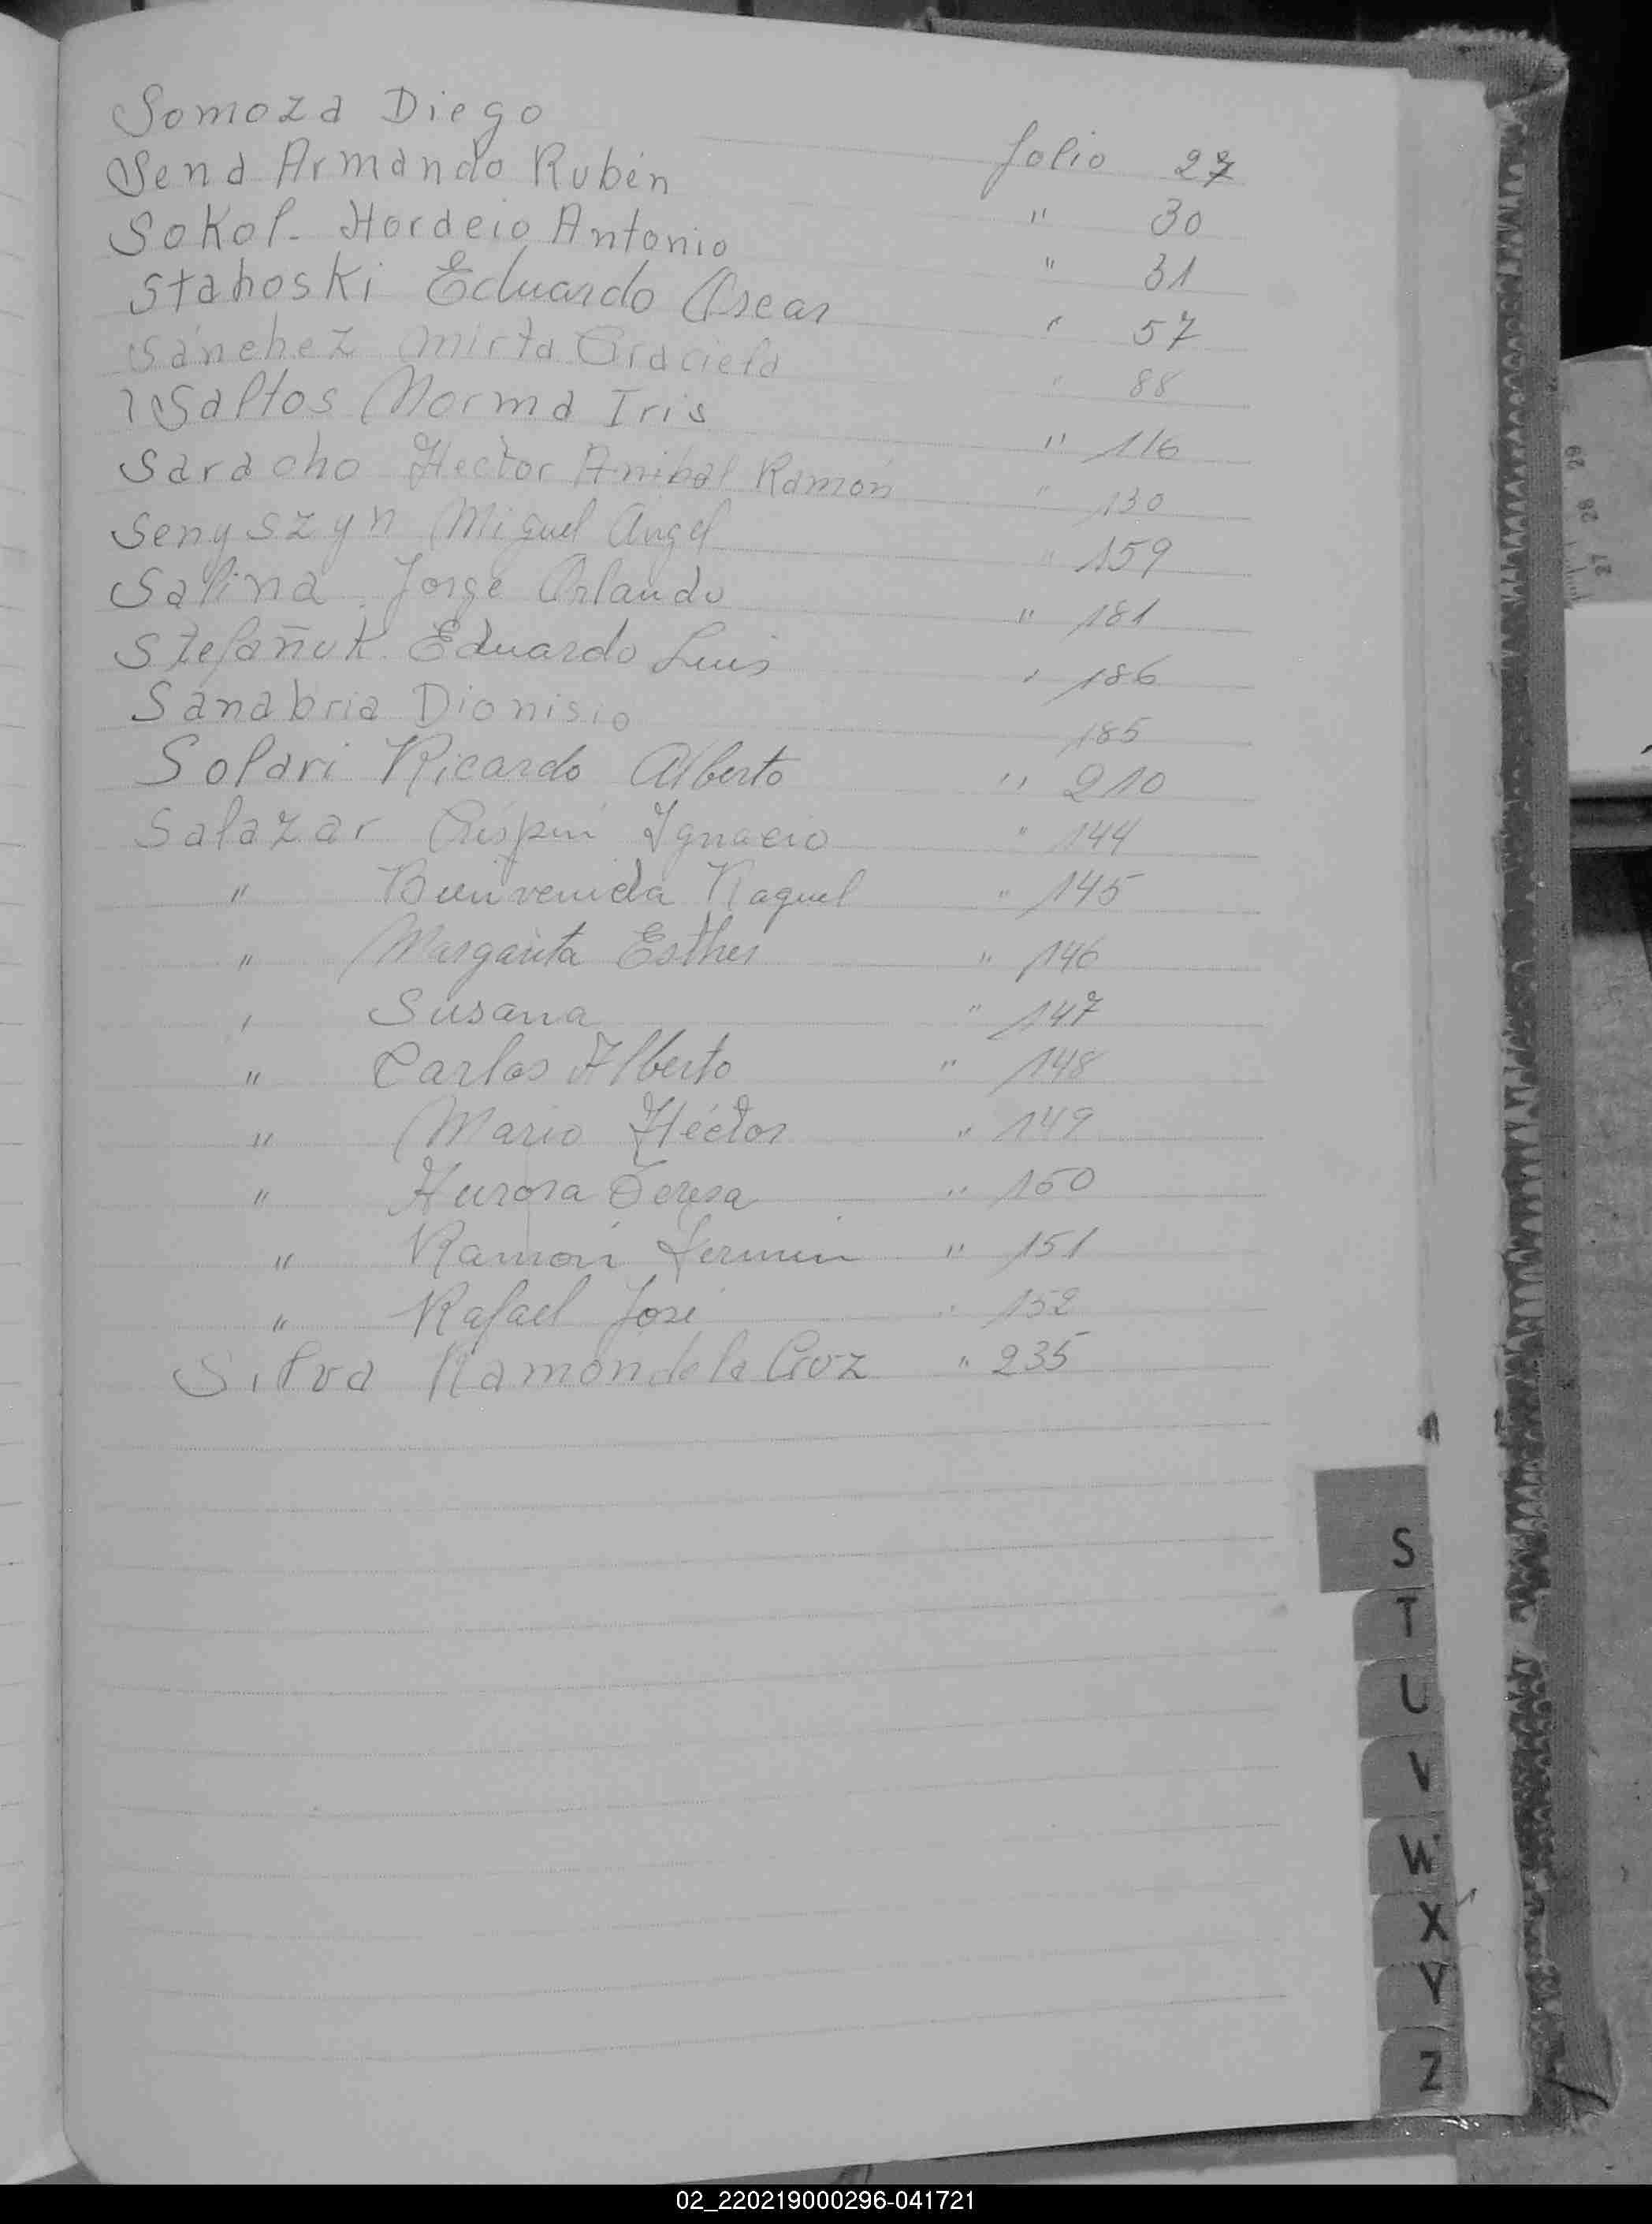 Somoza Diego folio 27
Sena Armando Rubén " 30
Sokol. Hordeio Antonio " 31
Stahoski Eduardo Oscar " 57
Sánchez Mirta Graciela " 88
Saltos Norma Iris " 116
Saracho Hector Anibal Ramón " 130
Senyszyn Miguel Angel " 159
Salina Jorge Orlando " 181
Stefañuk Eduardo Luis " 186
Sanabria Dionisio 185
Solari Ricardo Alberto " 210
Salazar Crispin Ignacio " 144
" Bienvenida Raquel " 145
" Margarita Esther " 146
" Susana " 147
" Carlos Alberto " 148
" Mario Héctor " 149
" Aurora Teresa " 150
" Ramón Fermin " 151
" Rafael José " 152
Silva Ramón de la Cruz " 235
S
T
U
V
W
X
Y
Z
29
28
27
02_220219000296-041721